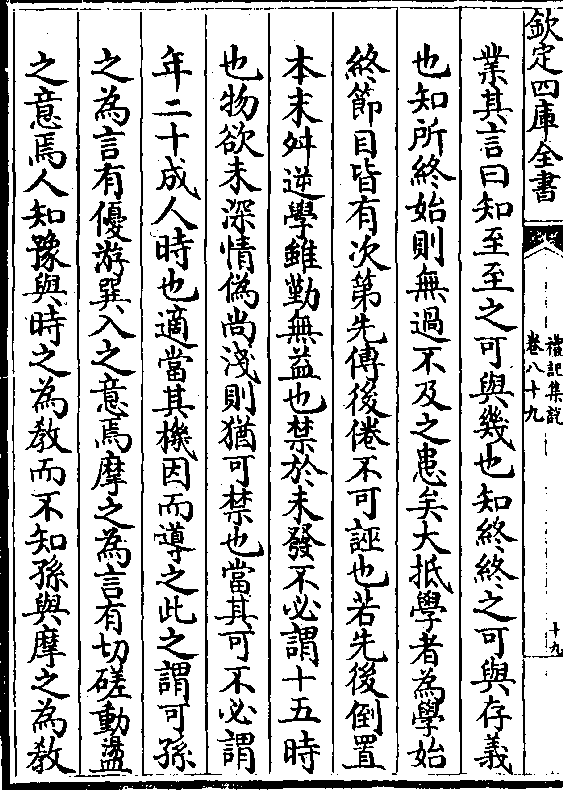 欽定四庫全書
禮記集說
卷八十九
十九
業其言曰知至至之可與幾也知終終之可與存義
也知所終始則無過不及之患矣大抵學者為學始
終節目皆有次第先傳後倦不可誣也若先後倒置
本末舛逆學雖勤無益也禁於未發不必謂十五時
也物欲未深情偽尚淺則猶可禁也當其可不必謂
年二十成人時也適當其機因而導之此之謂可孫
之為言有優游巽入之意焉摩之為言有切磋動盪
之意焉人知豫與時之為教而不知孫與摩之為教